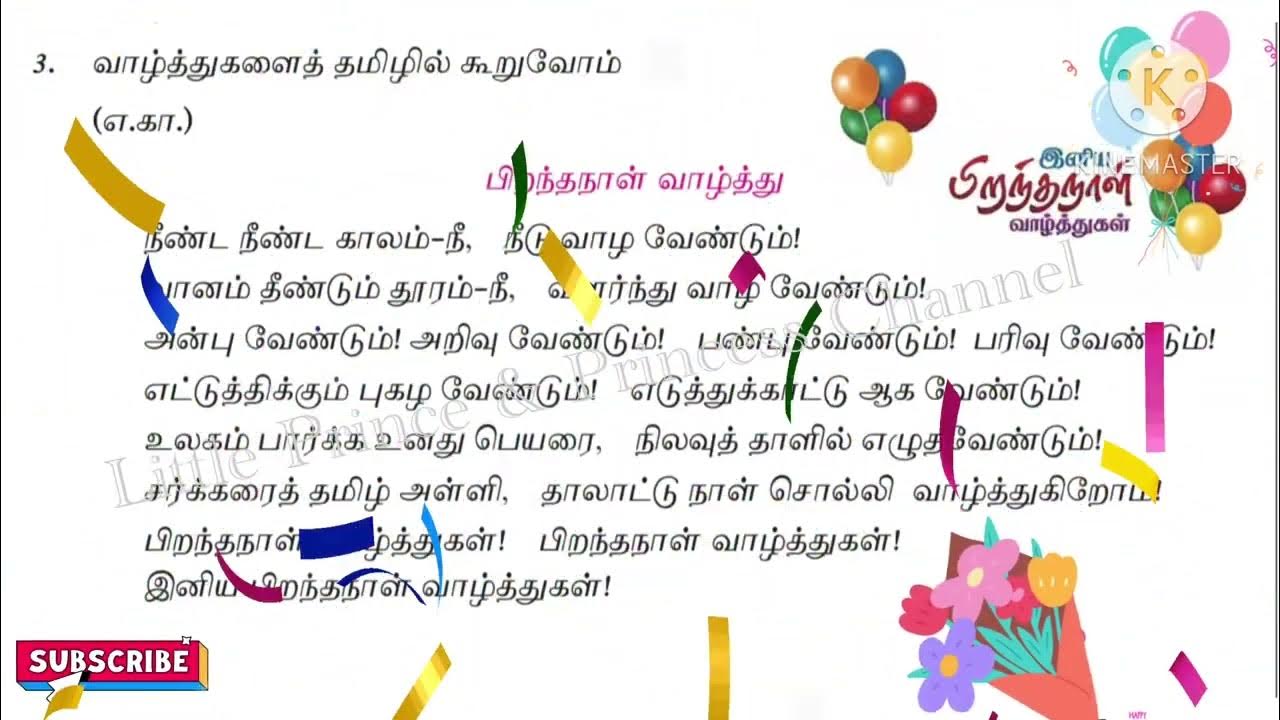 3. வாழ்த்துகளைத் தமிழில் கூறுவோம்
(எ.கா.)
K
KINEMASTER
இனிய
பிறந்தநாள்
வாழ்த்துகள்
பிறந்தநாள் வாழ்த்து
நீண்ட நீண்ட காலம்-நீ, நீடு வாழ வேண்டும்!
வானம் தீண்டும் தூரம்-நீ, வளர்ந்து வாழ வேண்டும்!
அன்பு வேண்டும்! அறிவு வேண்டும்! பண்பு வேண்டும்! பரிவு வேண்டும்!
எட்டுத்திக்கும் புகழ வேண்டும்! எடுத்துக்காட்டு ஆக வேண்டும்!
உலகம் பார்க்க உனது பெயரை, நிலவுத் தாளில் எழுதவேண்டும்!
சர்க்கரைத் தமிழ் அள்ளி, தாலாட்டு நாள் சொல்லி வாழ்த்துகிறோம்!
பிறந்தநாள் வாழ்த்துகள்! பிறந்தநாள் வாழ்த்துகள்!
இனிய பிறந்தநாள் வாழ்த்துகள்!
Little Prince & Princess Channel
SUBSCRIBE
HAPPY